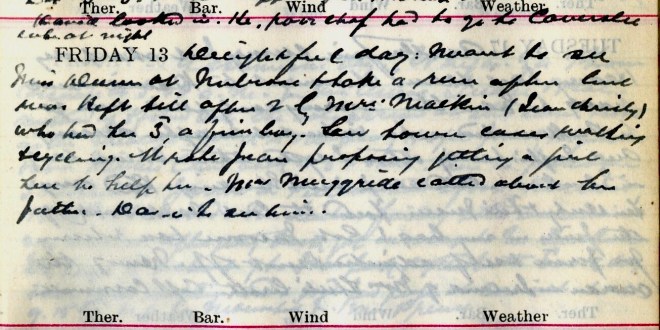 Ther. Bar. Wind Weather
David looked in. He, poor chap had to go to
out at night
FRIDAY 13 Delightful day. Meant to see
Miss at & take a run after but
was kept till after 2 by Mrs. Maitlin (Jean Christy)
who had her 3rd a fine boy. Saw some cases walking
& cycling. Wrote Jean proposing getting a girl
here to help her. Mrs Muggride called about her
father. Dav. in to see him.
Ther. Bar. Wind Weather